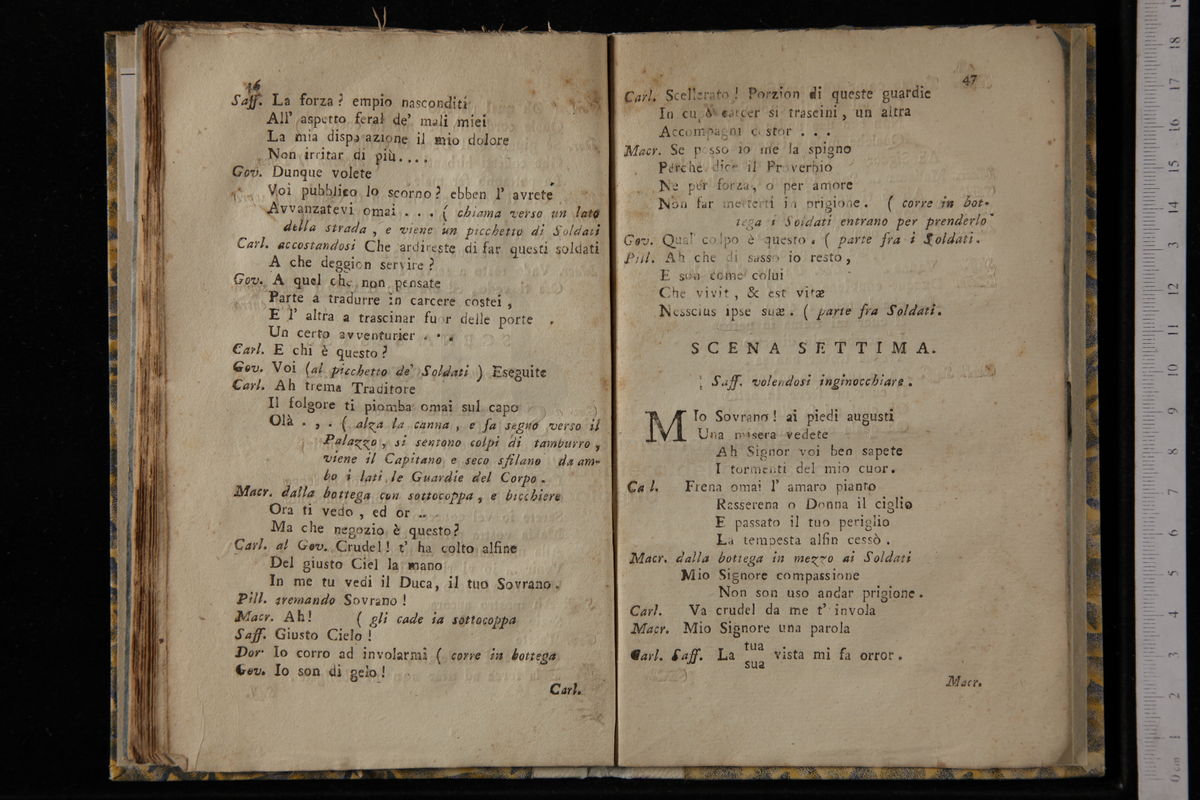 46
Saff. La forza? empio nasconditi
All' aspetto feral de' mali miei
La mia dispa azione il mio dolore
Non irritar di più....
Gov. Dunque volete
Voi pubblico lo scorno? ebben l' avrete
Avvanzatevi omai . . . ( chiama verso un lato
della strada, e viene un picchetto di Soldati
Carl. accostandosi Che ardireste di far questi soldati
A che deggion servire?
Gov. A quel che non pensate
Parte a tradurre in carcere costei,
E l' altra a trascinar fuor delle porte .
Un certo avventurier . . .
Carl. E chi è questo?
Gov. Voi (al picchetto de' Soldati ) Eseguite
Carl. Ah trema Traditore
Il folgore ti piomba omai sul capo
Olà . , . ( alza la canna, e fa segno verso il
Palazzo, si sentono colpi di tamburro,
viene il Capitano e seco sfilano da am-
bo i lati le Guardie del Corpo.
Macr. dalla bottega con sottocoppa, e bicchiere
Ora ti vedo, ed or ..
Ma che negozio è questo?
Carl. al Gov. Crudel! t' ha colto alfine
Del giusto Ciel la mano
In me tu vedi il Duca, il tuo Sovrano.
Pill. tremando Sovrano!
Macr. Ah! ( gli cade la sottocoppa
Saff. Giusto Cielo!
Dor. Io corro ad involarmi ( corre in bottega
Gov. Io son di gelo!
Carl.
47
Carl. Scellerato! Porzion di queste guardie
In cu o carcer si trascini, un altra
Accompagni costor . . .
Macr. Se posso io me la spigno
Perchè dice il Proverbio
Ne per forza, o per amore
Non far metterti in prigione. ( corre in bot-
tega i Soldati entrano per prenderlo
Gov. Qual colpo è questo. ( parte fra i Soldati.
Pill. Ah che di sasso io resto,
E son come colui
Che vivit, & est vitæ
Nesscius ipse suæ. ( parte fra Soldati.
SCENA SETTIMA.
Saff. volendosi inginocchiare.
MIo Sovrano! ai piedi augusti
Una misera vedete
Ah Signor voi ben sapete
I tormenti del mio cuor.
Ca l. Frena omai l' amaro pianto
Rasserena o Donna il ciglio
E passato il tuo periglio
La tempesta alfin cessò.
Macr. dalla bottega in mezzo ai Soldati
Mio Signore compassione
Non son uso andar prigione.
Carl. Va crudel da me t' invola
Macr. Mio Signore una parola
Carl. Saff. La tua sua vista mi fa orror.
Macr.